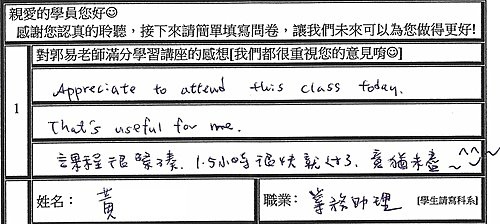 親愛的學員您好☺
感謝您認真的聆聽，接下來請簡單填寫問卷，讓我們未來可以為您做得更好!
對郭易老師滿分學習講座的感想[我們都很重視您的意見唷☺]
1
Appreciate to attend this class today.
That's useful for me.
課程很緊湊, 1.5小時很快就過了, 意猶未盡~^^~
姓名： 黃
職業： 業務助理 [學生請寫科系]